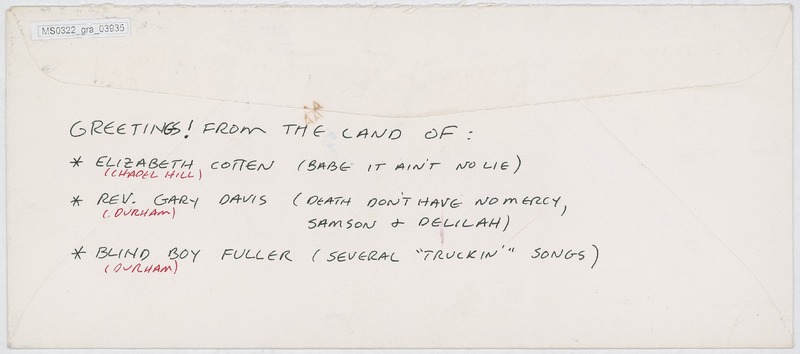 MS0322_gra_03935
GREETINGS! FROM THE LAND OF:
* ELIZABETH COTTEN (BABE IT AIN'T NO LIE)
(CHAPEL HILL)
* REV. GARY DAVIS (DEATH DON'T HAVE NO MERCY,
(DURHAM)
SAMSON & DELILAH)
* BLIND BOY FULLER (SEVERAL "TRUCKIN'" SONGS)
(DURHAM)